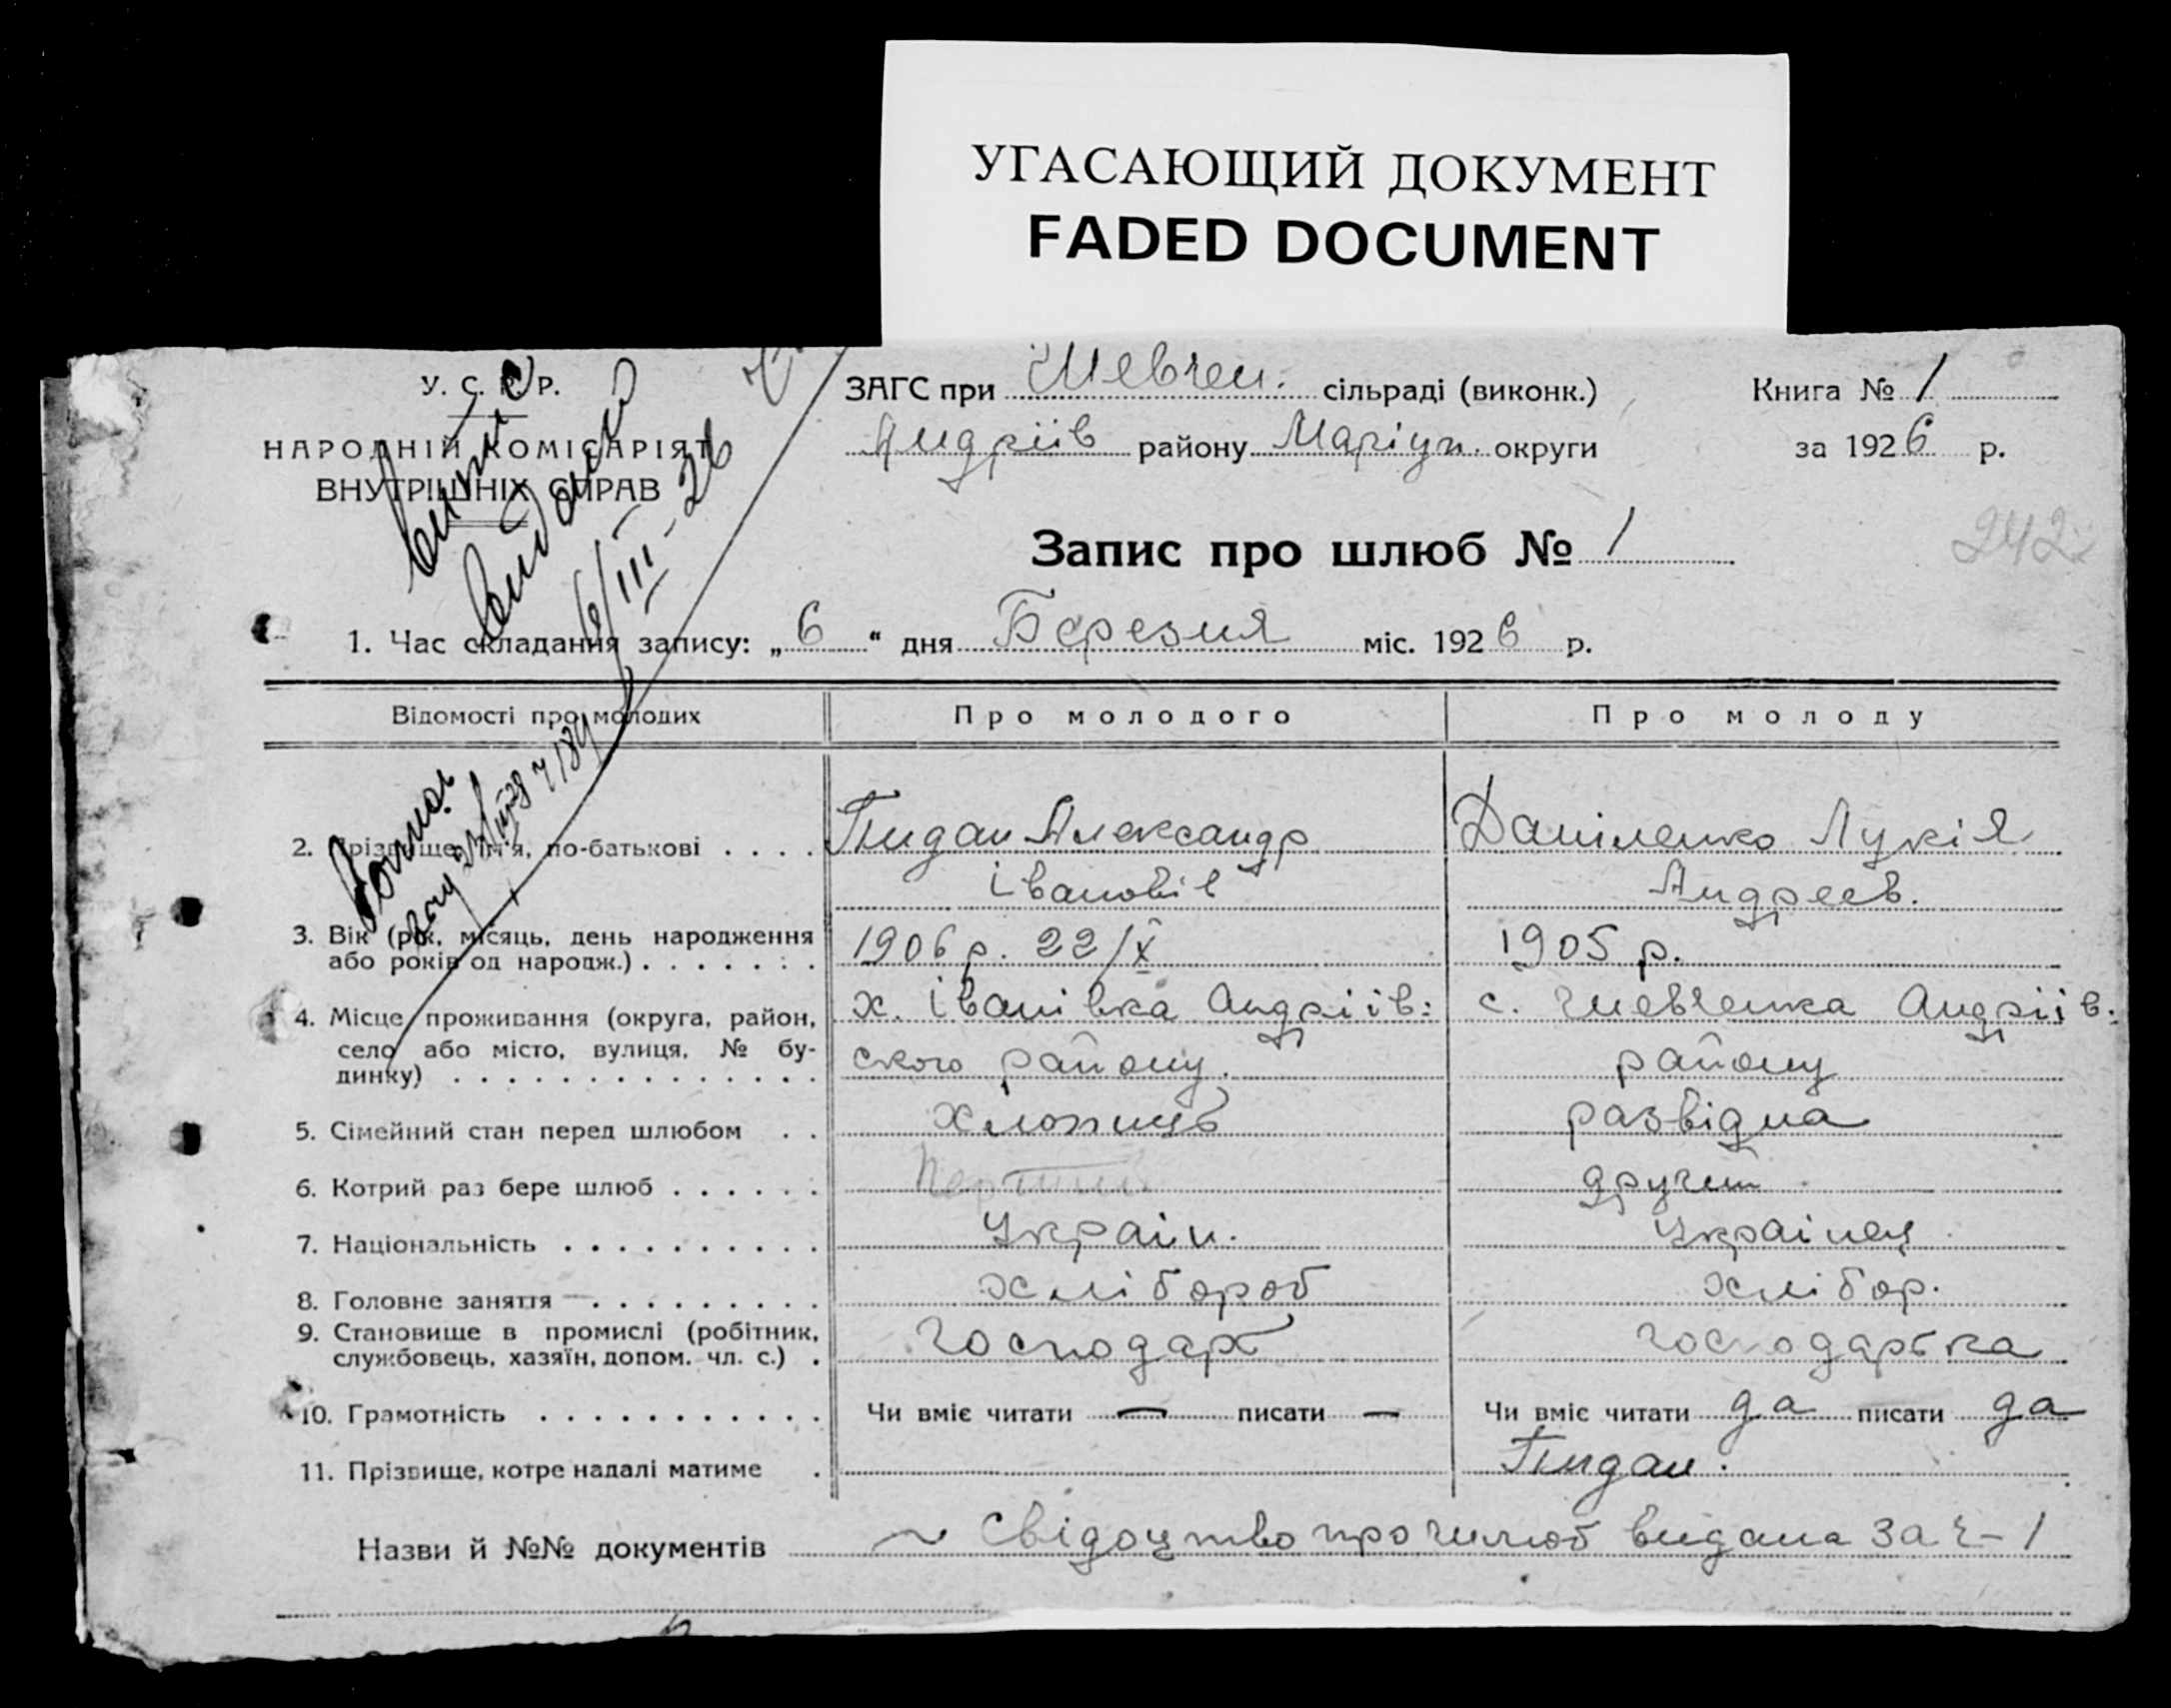 УГАСАЮЩИЙ ДОКУМЕНТ
FADED DOCUMENT
У. С. Р. Р.
НАРОДНІЙ КОМІСАРІЯТ
ВНУТРІШНІХ СПРАВ
ЗАГС при Шевчен. сільраді (виконк.)
Андріїв району Маріуп. округи
Книга № 1
за 1926 р.
Запис про шлюб № 1
242
6/III-26
1. Час складання запису: „6" дня Березня міс. 1926 р.
Відомості про молодих Про молодого Про молоду
2. Прізвище, ім'я, по-батькові . . . . Пидан Александр Даніленко Лукія
Івановіч Андреев.
3. Вік (рік, місяць, день народження 1906 р. 22/X 1905 р.
або років од народж.) . . . . . . .
4. Місце проживання (округа, район, х. Іванівка Андріїв: с. Шевченка Андріїв:
село або місто, вулиця, № бу- ского району. району
динку) . . . . . . . . . . . . . .
5. Сімейний стан перед шлюбом . . хлопиць развідна
6. Котрий раз бере шлюб . . . . . . Перший другий
7. Національність . . . . . . . . . . Україн. Українец
8. Головне заняття . . . . . . . . . хлібороб хлібор.
9. Становище в промислі (робітник, господарь господарька
службовець, хазяїн, допом. чл. с.) .
10. Грамотність . . . . . . . . . . . Чи вміє читати — писати — Чи вміє читати да писати да
11. Прізвище, котре надалі матиме . Пидан.
Назви й №№ документів ~ Свідоцтво про шлюб видана за ч-1